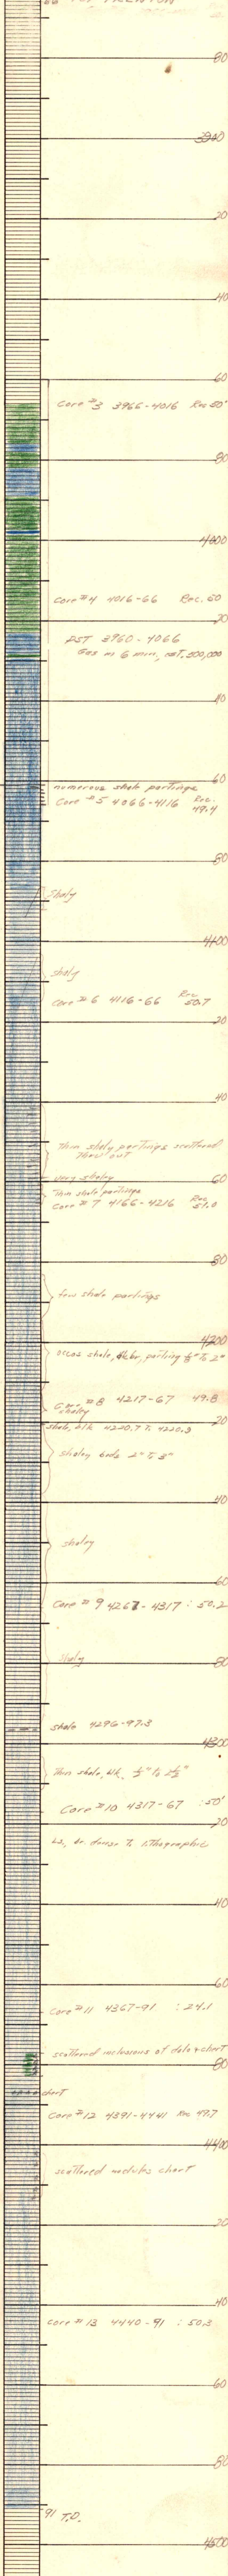 80
3900
20
40
60
Core #3 3966-4016 Rec 50'
80
4000
Core #4 4016-66 Rec. 50
20
DST 3960-4066
Gas in 6 min, est. 200,000
40
60
numerous shale partings
Core #5 4066-4116 Rec. 49.4
80
Shaly
4100
shaly
Core #6 4116-66 Rec 50.7
20
40
thin shaly partings scattered
thru out
very shaley
60
Thin shale partings
Core #7 4166-4216 Rec 51.0
80
few shale partings
4200
occas shale, blk, br, parting 1/8" To 2"
Core #8 4217-67 49.8
shaley
20
shale, blk 4220.7 To 4220.9
shaley beds 2" To 3"
40
shaley
60
Core #9 4267-4317 : 50.2
shaly
80
shale 4296-97.3
4300
Thin shale, blk, 1/2" to 1 1/2"
Core #10 4317-67 : 50'
20
Ls, br. dense To lithographic
40
60
Core #11 4367-91 : 24.1
scattered inclusions of dolo + chert
80
chert
Core #12 4391-4441 Rec 49.7
4400
scattered nodules chert
20
40
Core #13 4440-91 : 50.3
60
80
91 T.D.
4500